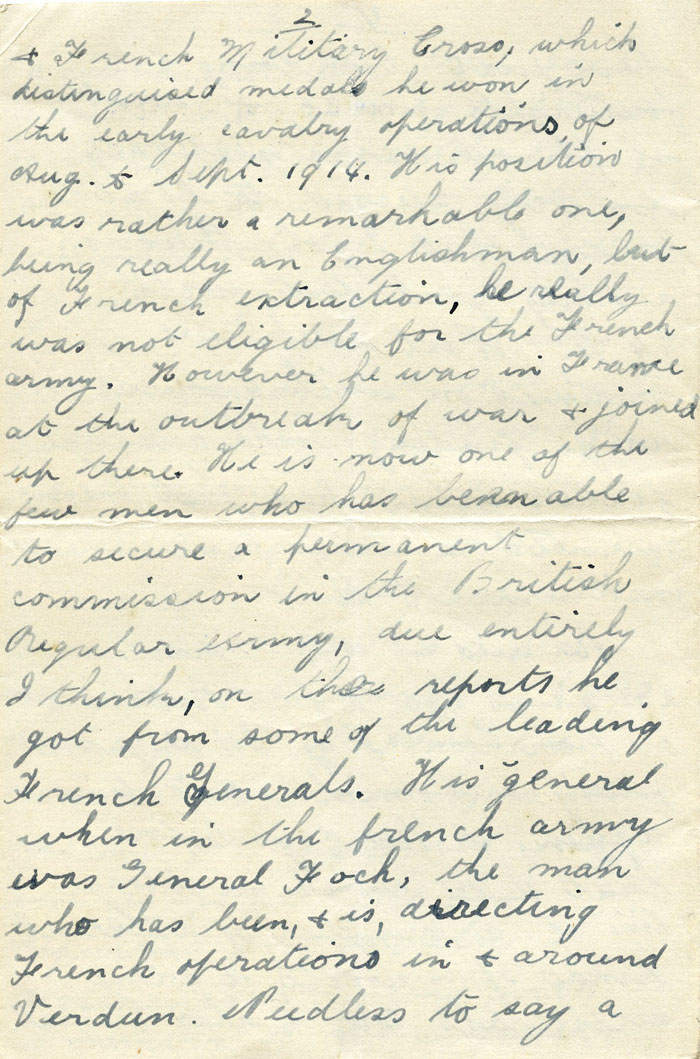 2
& French Military Cross, which
distinguised medals he won in
the early cavalry operations of
Aug. & Sept. 1914. His position
was rather a remarkable one,
being really an Englishman, but
of French extraction, he really
was not eligible for the French
army. However he was in France
at the outbreak of war & joined
up there. He is now one of the
few men who has been able
to secure a permanent
commission in the British
Regular Army, due entirely
I think, on the reports he
got from some of the leading
French Generals. His general
when in the french army
was General Foch, the man
who has been, & is, directing
French operations in & around
Verdun. Needless to say a